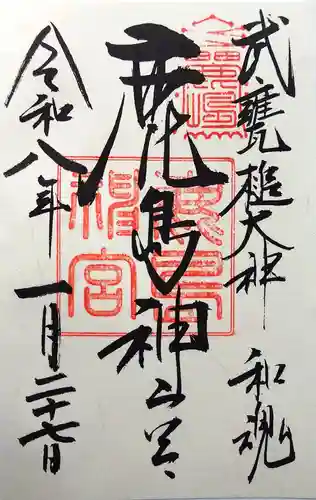 武甕槌大神 和魂
鹿島神宮
令和八年一月二十七日